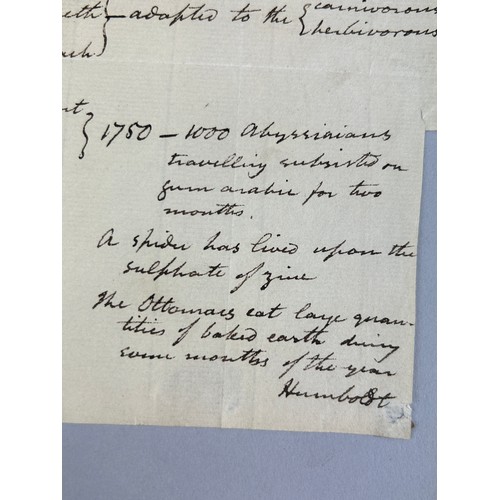 eth } – adapted to the { carnivorous
herbivorous
1750 – 1000 Abyssinians
travelling subsisted on
gum arabic for two
months.
A spider has lived upon the
sulphate of zinc
The Ottomacs eat large quan-
tities of baked earth during
some months of the year
Humboldt